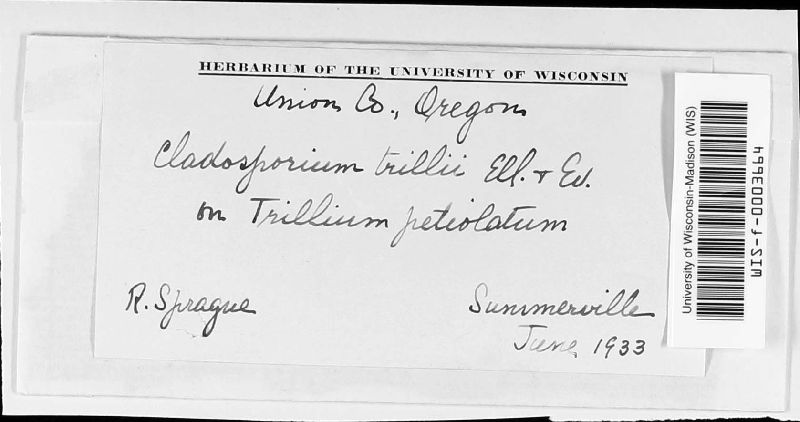 HERBARIUM OF THE UNIVERSITY OF WISCONSIN
Union Co., Oregon
Cladosporium trillii Ell. & Ev.
on Trillium petiolatum
R. Sprague
Summerville
June 1933
University of Wisconsin-Madison (WIS)
WIS-f-0003664